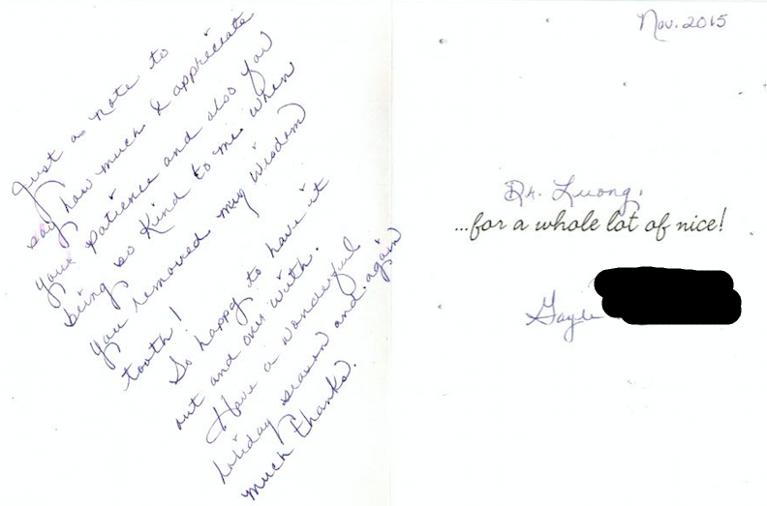 Just a note to
say how much I appreciate
your patience and also for
being so kind to me when
you removed my wisdom
tooth!
So happy to have it
out and over with.
Have a wonderful
holiday season and again
much thanks.
Nov. 2015
Dr. Luong,
...for a whole lot of nice!
Gayle